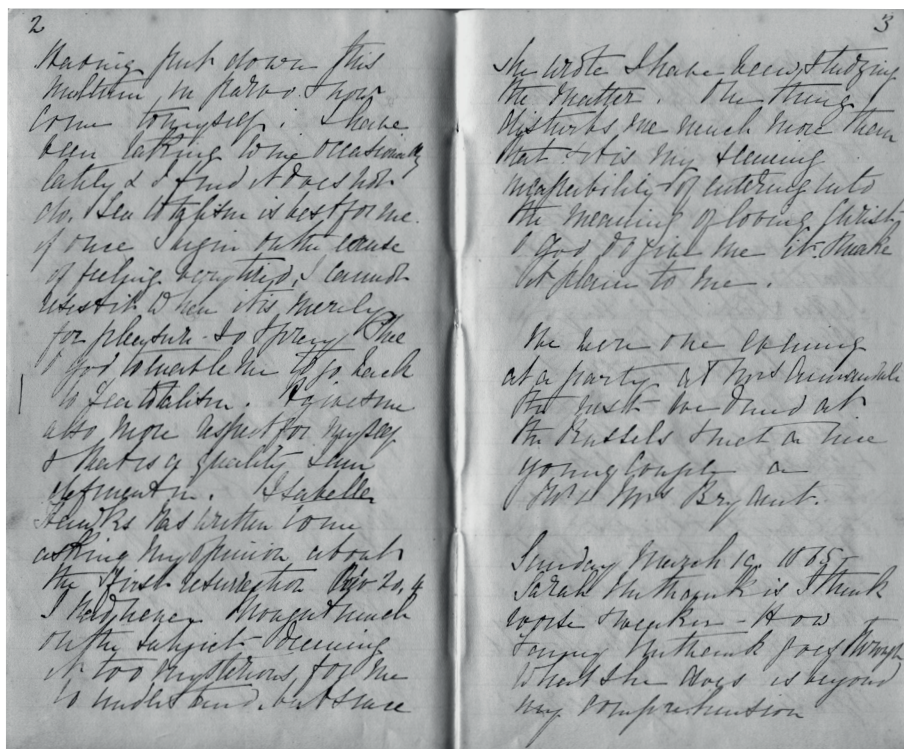 2
Having put down this
multum in parvo I now
come to myself. I have
been taking wine occasionally
lately & I find it does not
do. Tea totalism is best for me.
if once I begin on the excuse
of feeling very tired, I cannot
resist it when it is merely
for pleasure - So I pray Thee
O God to enable me to go back
to Teatotalism. It gives me
also more respect for myself
& that is a quality I am
deficient in. Isabella
Hanks has written to me
asking my opinion about
the first resurrection Rev 20,
I had never thought much
on the subject deeming
it too mysterious for me
to understand, but since
3
she wrote I have been studying
the matter. One thing
disturbs me much more than
that & it is my seeming
incapability of entering into
the meaning of loving Christ
O God do give me it & make
it plain to me.
We were one evening
at a party at Mrs
the next we dined at
the Russels & met a nice
young couple a
Mr & Mrs Bryant.
Sunday March 19. 1865
Sarah is I think
worse & weaker - How
goes through
what she does is beyond
my comprehension